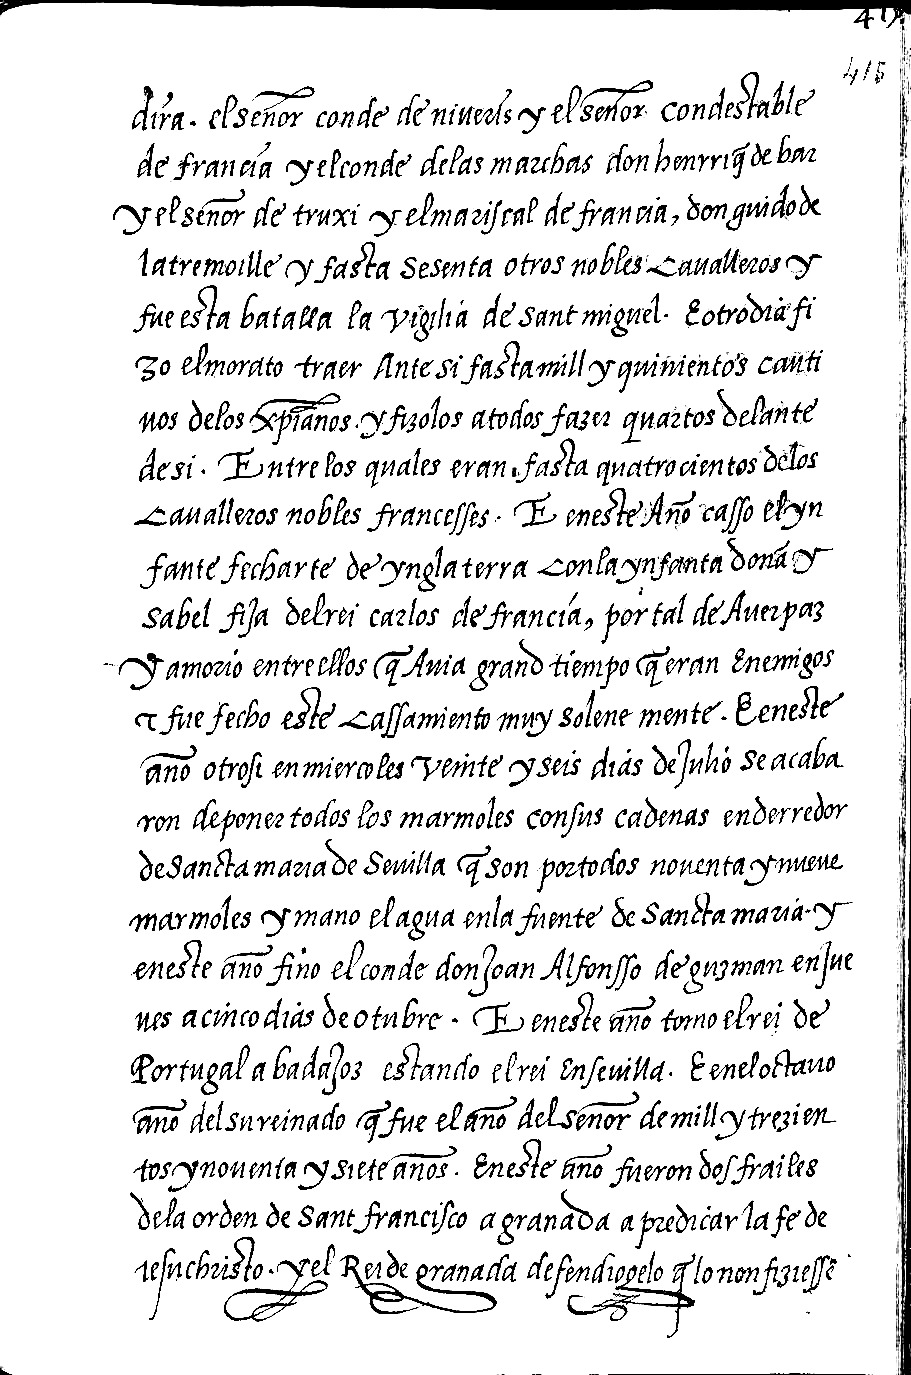 415
dira. el señor conde de niuers y el señor condestable
de francia y el conde delas marchas don henrriq̃ de bar
y el señor de truxi y el mariscal de francia, don guido de
latremoille y fasta sesenta otros nobles caualleros y
fue esta batalla la vigilia de sant miguel. E otro dia fi
zo elmorato traer Ante si fasta mill y quinientos cauti
uos delos xp̃ianos. y fizolos a todos fazer quartos delante
de si. Entre los quales eran fasta quatrocientos delos
caualleros nobles francesses. E eneste Año casso el yn
fante fecharte de ynglaterra con la ynfanta doña y
sabel fija del rei carlos de francia, por tal de Auer paz
y amorio entre ellos q̃ Auia grand tiempo q̃ eran Enemigos
τ fue fecho este cassamiento muy solene mente. E eneste
año otrosi en miercoles veinte y seis dias de Julio se acaba
ron de poner todos los marmoles con sus cadenas enderredor
de Sancta maria de Seuilla q̃ son por todos nouenta y nueue
marmoles y mano el agua enla fuente de Sancta maria. y
eneste año fino el conde don Joan Alfonsso de guzman en Jue
ues a cinco dias de otubre. E eneste año tomo el rei de
Portugal a badajoz estando el rei En seuilla. E enel octauo
año del su reinado q̃ fue el año del señor de mill y trezien
tos y nouenta y siete años. Eneste año fueron dos frailes
dela orden de Sant francisco a granada a predicar la fe de
iesuchristo. y el Rei de granada defendiogelo q̃ lo non fiziessẽ